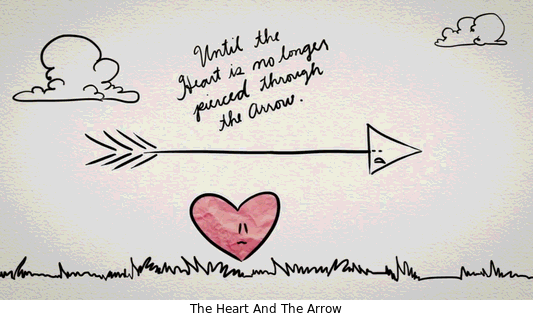 Until the
Heart is no longer
pierced through
the Arrow.
The Heart And The Arrow